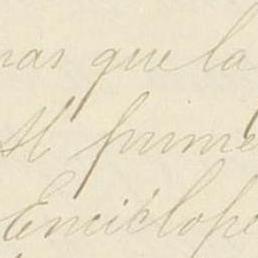 mas que la
M prime
Enciclope